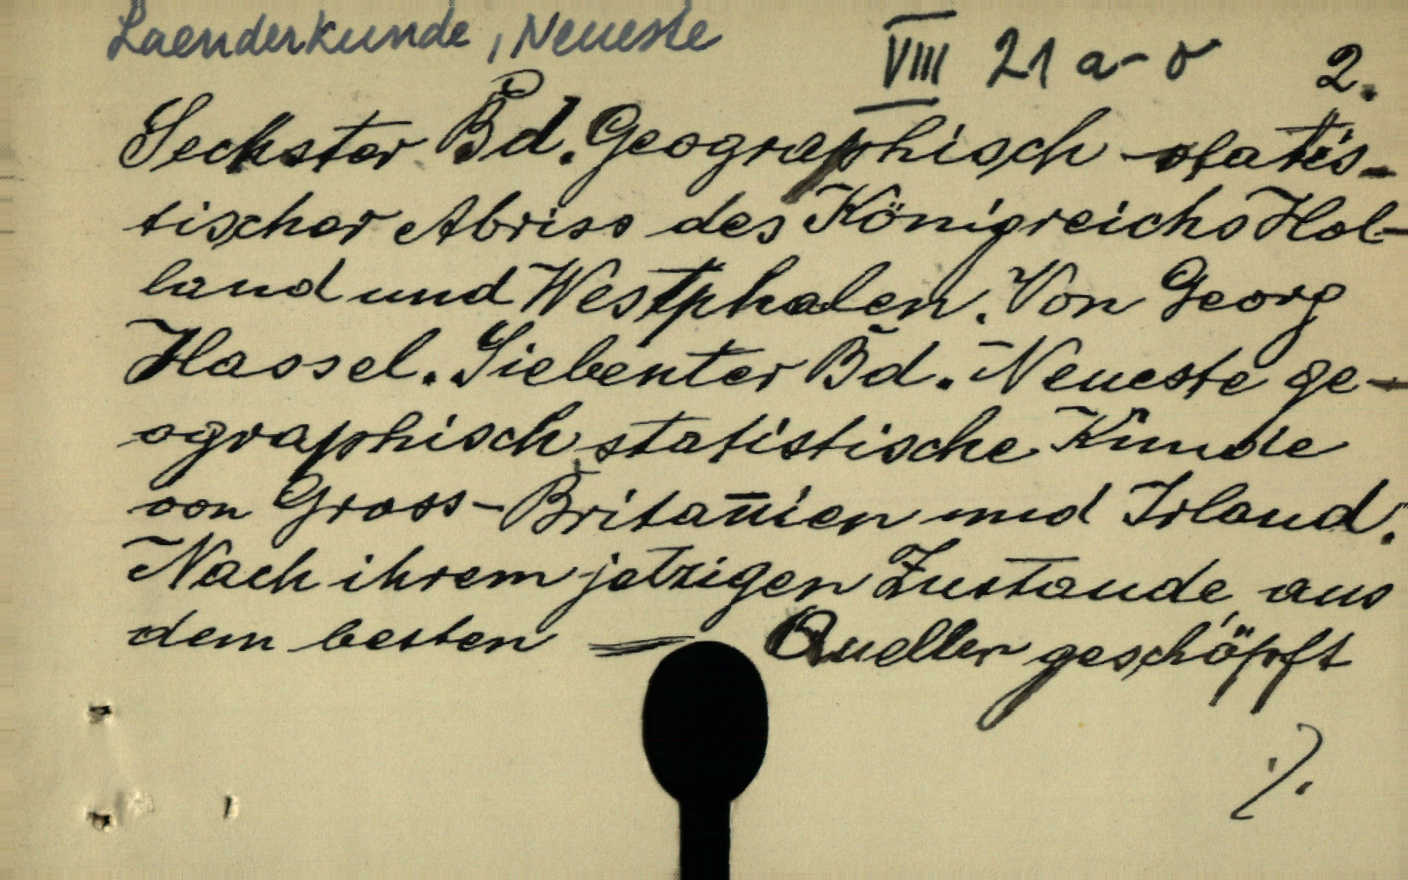 Laenderkunde, Neueste
VIII 21 a-o 2.
Sechster Bd. Geographisch statis-
tischer Abriss des Königreichs Hol-
land und Westphalen. Von Georg
Hassel. Siebenter Bd. Neueste ge-
ographisch statistische Kunde
von Gross-Britan̄ien und Irland.
Nach ihrem jetzigen Zustande, aus
dem besten Quellen geschöpft
./.